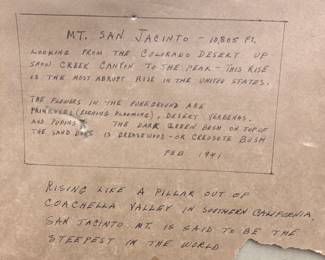 MT. SAN JACINTO - 10,805 FT.
LOOKING FROM THE COLORADO DESERT UP
SNOW CREEK CANYON TO THE PEAK - THIS RISE
IS THE MOST ABRUPT RISE IN THE UNITED STATES.
THE FLOWERS IN THE FOREGROUND ARE
PRIMROSES (EVENING BLOOMING), DESERT VERBENAS,
AND LUPINS THE DARK GREEN BUSH ON TOP OF
THE SAND DUNES IS GREASEWOOD - OR CREOSOTE BUSH
FEB 1941
RISING LIKE A PILLAR OUT OF
COACHELLA VALLEY IN SOUTHERN CALIFORNIA,
SAN JACINTO MT. IS SAID TO BE THE
STEEPEST IN THE WORLD